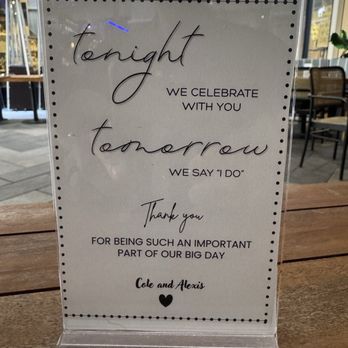 tonight
WE CELEBRATE
WITH YOU
tomorrow
WE SAY "I DO"
Thank you
FOR BEING SUCH AN IMPORTANT
PART OF OUR BIG DAY
Cole and Alexis